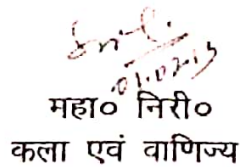 01.02.19
महा० निरी०
कला एवं वाणिज्य